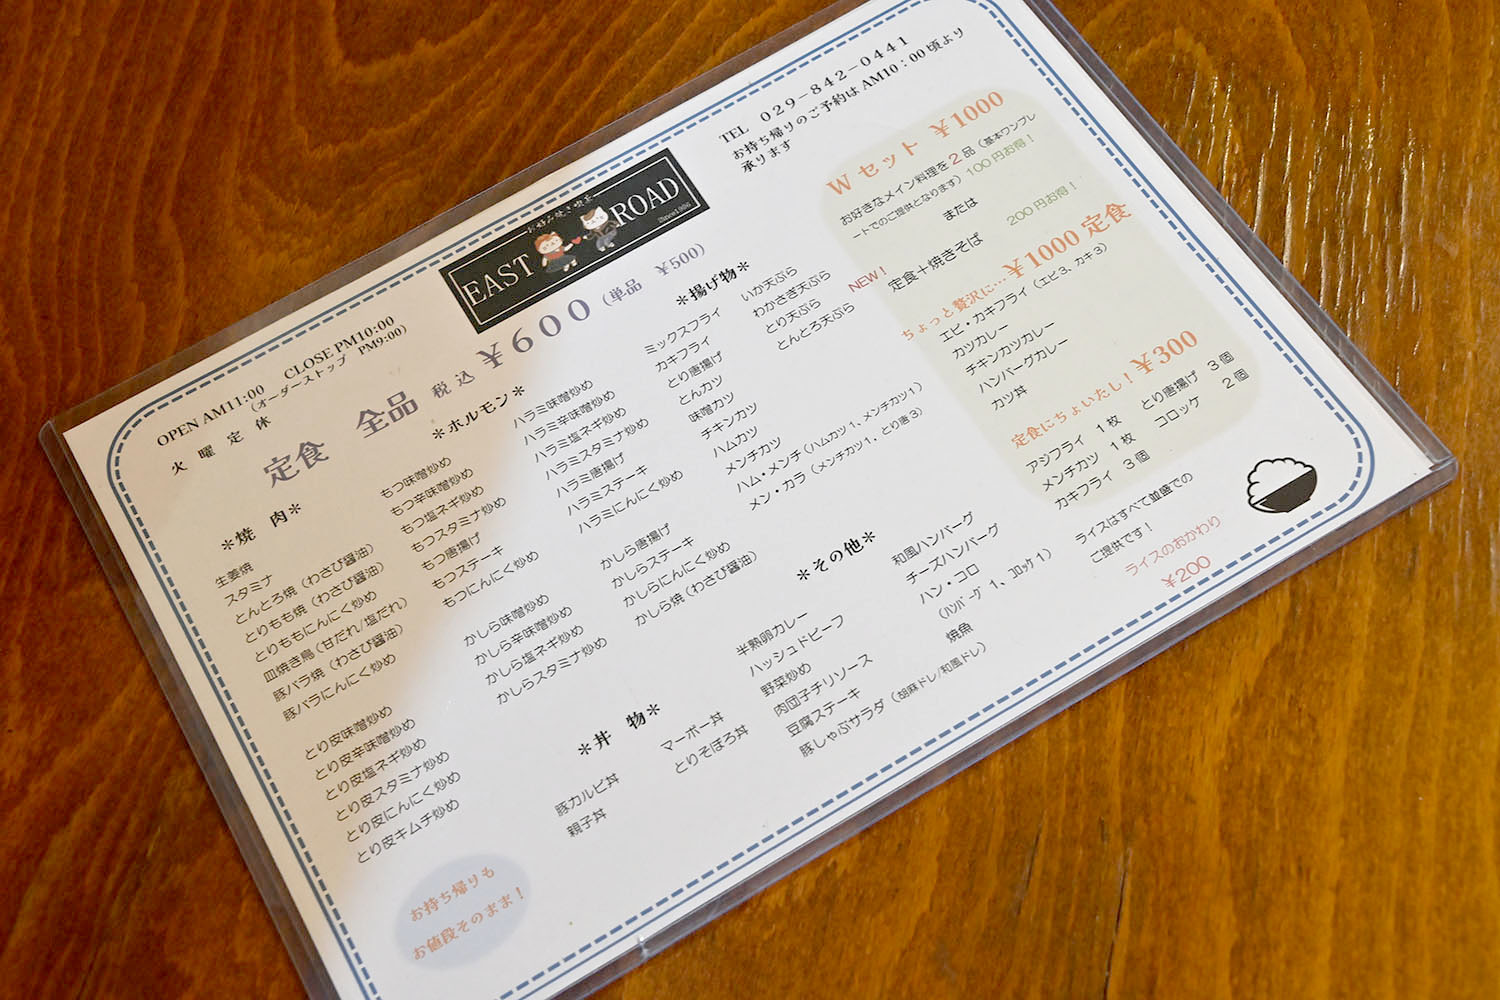 OPEN AM11:00　CLOSE PM10:00
（オーダーストップ　PM9:00）
火曜定休
お好み焼き喫茶
EAST ROAD
Since1986
TEL　029－842－0441
お持ち帰りのご予約は AM10：00 頃より
承ります
定食　全品　税込　￥600（単品　￥500）
＊焼　肉＊
生姜焼
スタミナ
とんとろ焼（わさび醤油）
とりもも焼（わさび醤油）
とりももにんにく炒め
皿焼き鳥（甘だれ/塩だれ）
豚バラ焼（わさび醤油）
豚バラにんにく炒め
とり皮味噌炒め
とり皮辛味噌炒め
とり皮塩ネギ炒め
とり皮スタミナ炒め
とり皮にんにく炒め
とり皮キムチ炒め
＊ホルモン＊
もつ味噌炒め
もつ辛味噌炒め
もつ塩ネギ炒め
もつスタミナ炒め
もつ唐揚げ
もつステーキ
もつにんにく炒め
ハラミ味噌炒め
ハラミ辛味噌炒め
ハラミ塩ネギ炒め
ハラミスタミナ炒め
ハラミ唐揚げ
ハラミステーキ
ハラミにんにく炒め
かしら味噌炒め
かしら辛味噌炒め
かしら塩ネギ炒め
かしらスタミナ炒め
かしら唐揚げ
かしらステーキ
かしらにんにく炒め
かしら焼（わさび醤油）
＊揚げ物＊
ミックスフライ
カキフライ
とり唐揚げ
とんカツ
味噌カツ
チキンカツ
ハムカツ
メンチカツ
ハム・メンチ（ハムカツ１、メンチカツ１）
メン・カラ（メンチカツ１、とり唐３）
いか天ぷら
わかさぎ天ぷら
とり天ぷら
とんとろ天ぷら　NEW！
＊丼　物＊
豚カルビ丼
親子丼
マーボー丼
とりそぼろ丼
＊その他＊
半熟卵カレー
ハッシュドビーフ
野菜炒め
肉団子チリソース
豆腐ステーキ
豚しゃぶサラダ（胡麻ドレ/和風ドレ）
和風ハンバーグ
チーズハンバーグ
ハン・コロ
（ﾊﾝﾊﾞｰｸﾞ１、ｺﾛｯｹ１）
焼魚
W セット　￥1000
お好きなメイン料理を２品（基本ワンプレ
ートでのご提供となります）100 円お得！
または
定食＋焼きそば　200 円お得！
ちょっと贅沢に…￥1000 定食
エビ・カキフライ（エビ３、カキ３）
カツカレー
チキンカツカレー
ハンバーグカレー
カツ丼
定食にちょいたし！￥300
アジフライ　１枚　とり唐揚げ　３個
メンチカツ　１枚　コロッケ　２個
カキフライ　３個
ライスはすべて並盛での
ご提供です！
ライスのおかわり
￥200
お持ち帰りも
お値段そのまま！